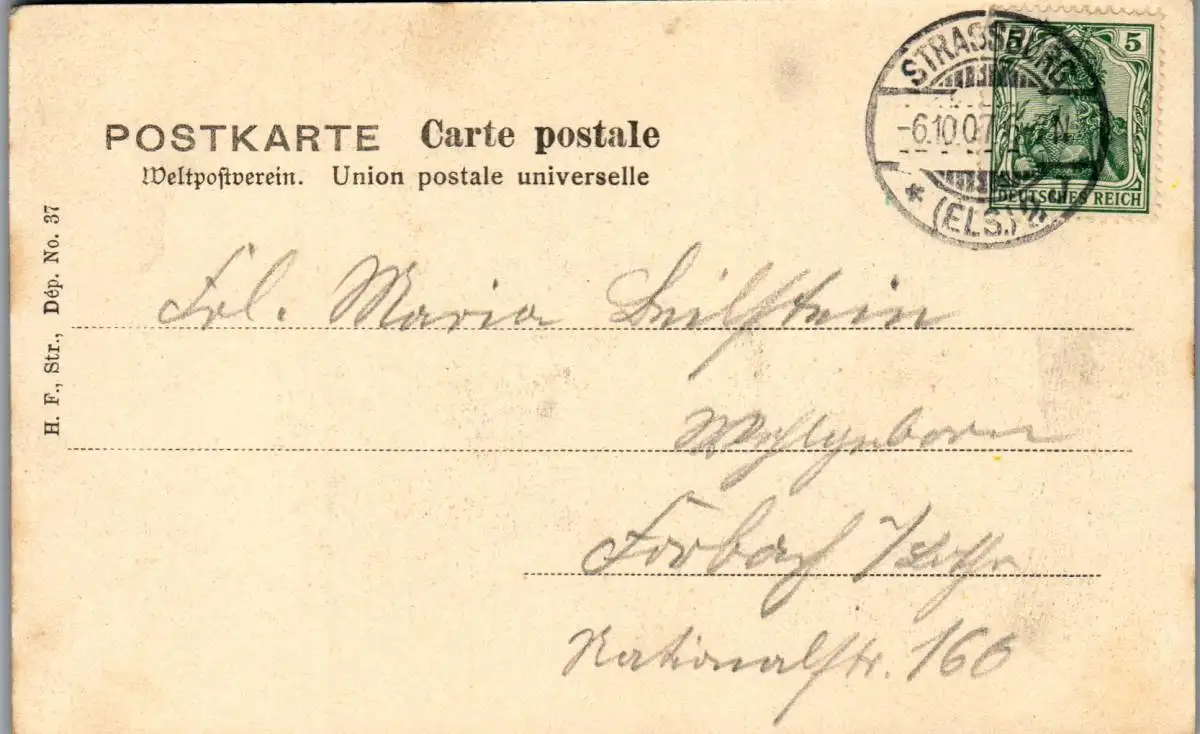 POSTKARTE Carte postale
Weltpostverein. Union postale universelle
STRASSBURG
-6.10.07. N
* (ELS.)
5 5
DEUTSCHES REICH
H. F., Str., Dép. No. 37
Frl. Maria Beilstein
Forbach /Lothr
Nationalstr. 166